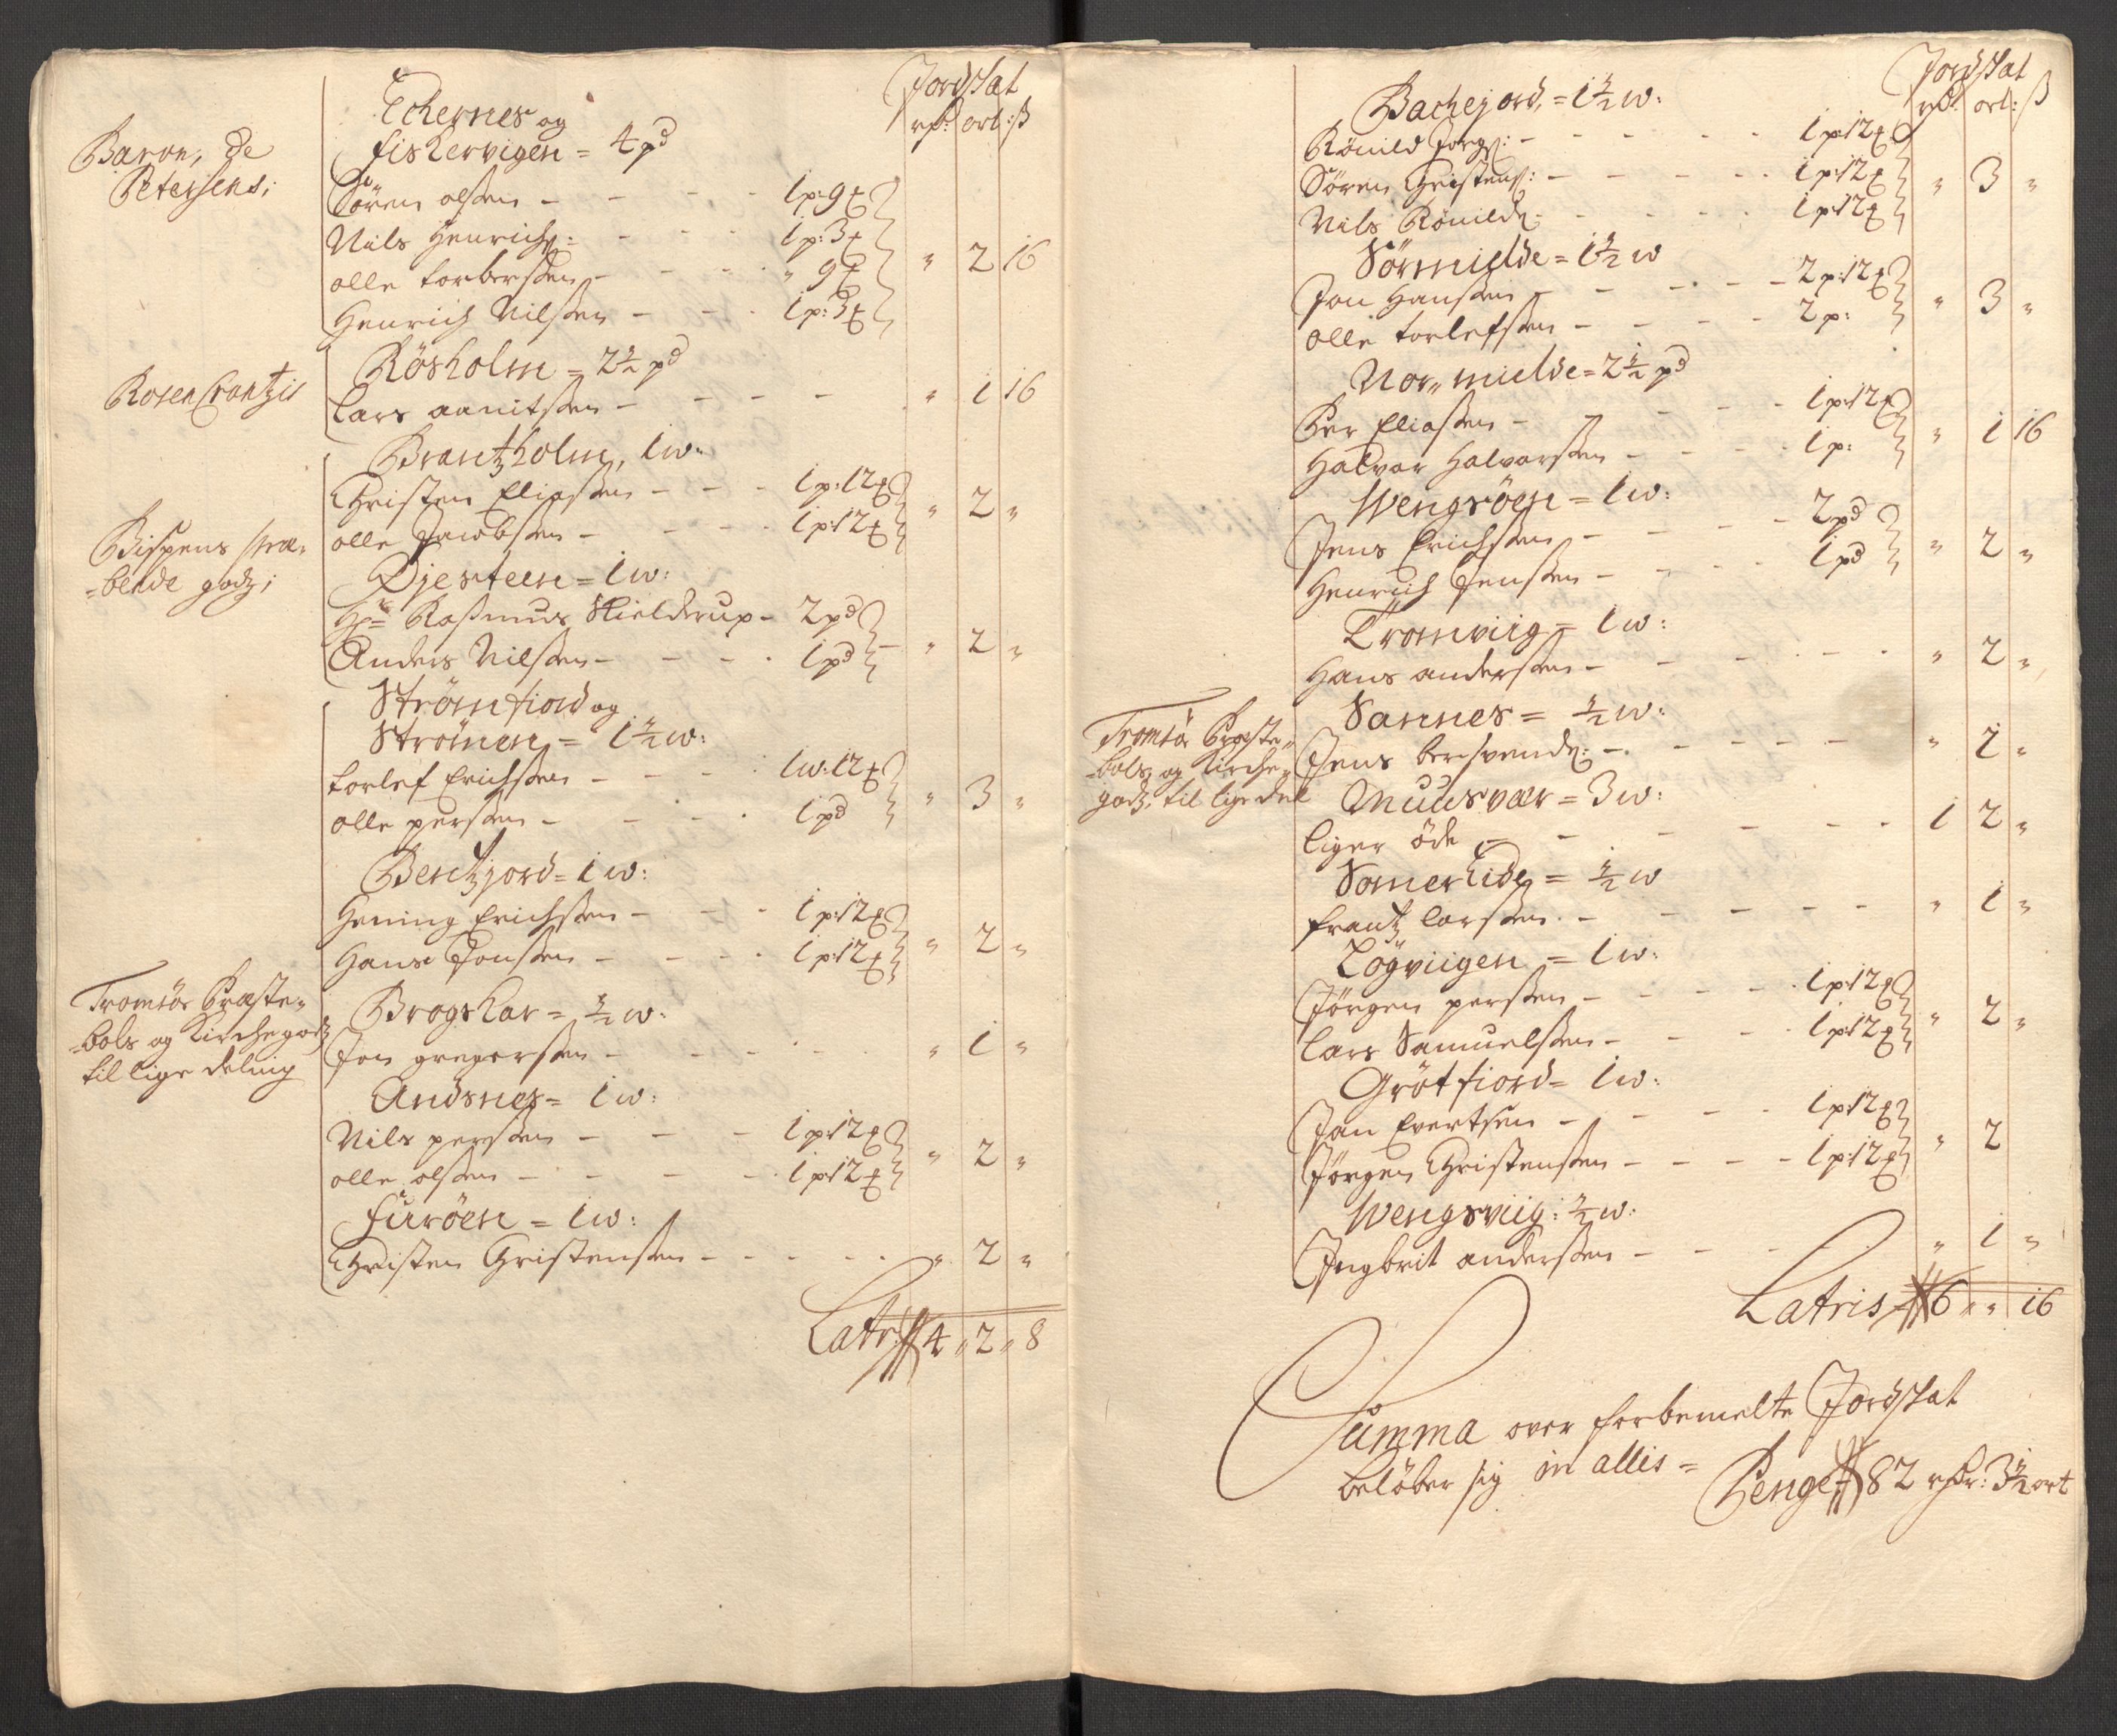 Jordskat
rd: ort: ß
Echernes og
Baron, De
Petersens:
fiskervigen = 4 pd
Sören olssen - - - 1 p: 9 ℔
Nils Henrichs: - - - 1 p: 3 ℔
olle torberssen - - - " 9 ℔ " 2 16
Henrich Nilssen - - - 1 p: 3 ℔
Rosencrantzis
Rösholm = 2½ pd
Lars aanitssen - - - - " 1 16
Brantzholm, 1 w:
Christen Eliassen - - - 1 p: 12 ℔
olle Jacobssen - - - 1 p: 12 ℔ " 2 "
Bispens præ-
-bende godz:
Djesteen = 1 w:
Hr: Rasmus Skielderup - 2 pd
Anders Nilssen - - - 1 pd " 2 "
Strömfiord og
Strömen = 1½ w:
torlef Erichssen - - - 1 w: 12 ℔
olle perssen - - - 1 pd " 3 "
Bentzjord = 1 w:
Hening Erichssen - - - 1 p: 12 ℔
Hans Jonssen - - - 1 p: 12 ℔ " 2 "
Tromsös Præste-
-bols og Kirche godz
til lige deling
Brogskar = ½ w:
Jon gregerssen - - - " 1 "
Andsnes = 1 w:
Nils perssen - - - 1 p: 12 ℔
olle olssen - - - 1 p: 12 ℔ " 2 "
Furöen = 1 w:
Christen Christenssen - - - " 2 "
Latr: 4 " 2 " 8
Jordskat
rd: ort: ß
Bachejord, = 1½ w:
Rönild Jorgs: - - - 1 p: 12 ℔
Sören Christens: - - - 1 p: 12 ℔ " 3 "
Nils Rönilds: - - - 1 p: 12 ℔
Sörmielde = 1½ w
Jon Hanssen - - - 2 p: 12 ℔
olle torlefssen - - - 2 p: " 3 "
Nor, mielde = 2½ pd
Per Eliassen - - - 1 p: 12 ℔
Halvor Halvorssen - - - 1 p: " 1 16
Wengsöen = 1 w:
Jens Erichssen - - - 2 pd
Henrich Jenssen - - - 1 pd " 2 "
Tromviig = 1 w:
Hans anderssen - - - " 2 "
Tromsös Præste-
-bols og Kirche-
godz til lige del
Sannes = ½ w:
Jens bersvends: - - - " 1 "
Muusvær = 3 w:
liger öde - - - 1 2 "
Somerside = ½ w
frantz Larssen - - - " 1 "
Lögviigen = 1 w:
Jörgen perssen - - - 1 p: 12 ℔
Lars Samuelssen - - - 1 p: 12 ℔ " 2 "
Grötfiord = 1 w:
Jan Evertsen - - - 1 p: 12 ℔
Jörgen Christenssen - - - 1 p: 12 ℔ " 2
Wengsviig: ½ w:
Ingbrit anderssen - - - " 1 "
Latris 6 " " 16
Summa over forbemelte Jordskat
belöber sig in allis =
Penge 82 rdr: 3½ ort